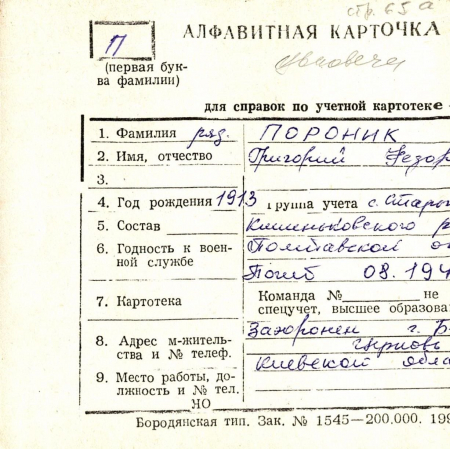 стр. 65 а
П
АЛФАВИТНАЯ КАРТОЧКА
(первая бук-
ва фамилии)
для справок по учетной картотеке
1. Фамилия ряд. ПОРОНИК
2. Имя, отчество Григорий Федор
3.
4. Год рождения 1913 Группа учета с. Стары
5. Состав Кишеньковского р
6. Годность к воен-
ной службе
Полтавской о
Погиб 08.194
7. Картотека
Команда № не
спецучет, высшее образова
8. Адрес м-житель-
ства и № телеф.
Захоронен г. Б
Киевской обла
9. Место работы, до-
лжность и № тел.
НО
Бородянская тип. Зак. № 1545—200.000. 199